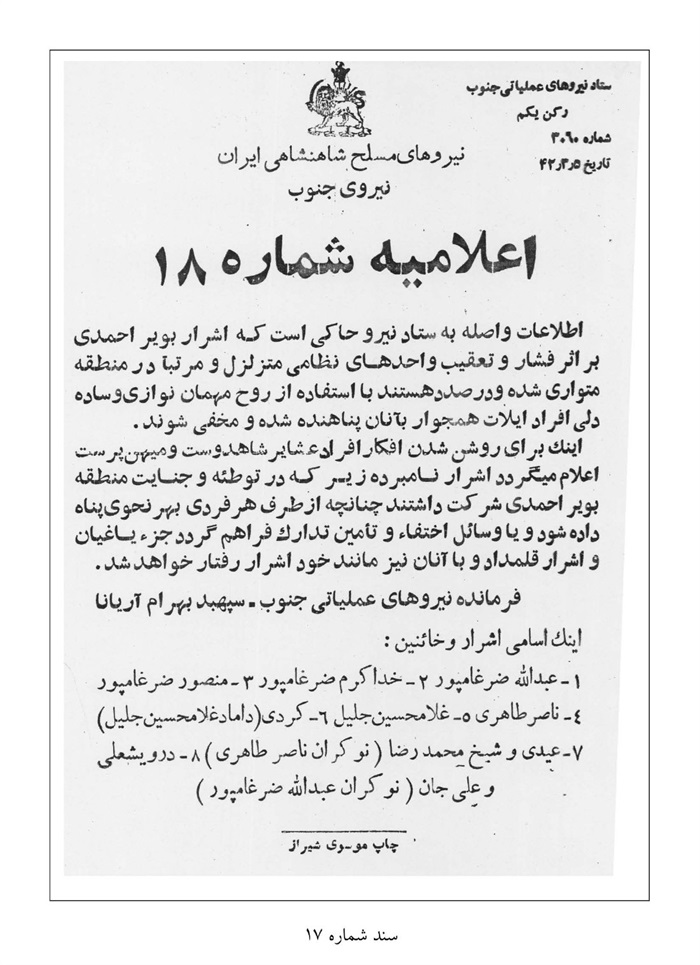 ستاد نیروهای عملیاتی جنوب
رکن یکم
شماره ۳۰۶۰
تاریخ ۴۲٫۳٫۵
نیروهای مسلح شاهنشاهی ایران
نیروی جنوب
اعلامیه شماره ۱۸
اطلاعات واصله به ستاد نیرو حاکی است که اشرار بویر احمدی
بر اثر فشار و تعقیب واحدهای نظامی متزلزل و مرتباً در منطقه
متواری شده و درصدد هستند با استفاده از روح مهمان نوازی و ساده
دلی افراد ایلات همجوار بآنان پناهنده شده و مخفی شوند.
اینك برای روشن شدن افکار افراد عشایر شاهدوست و میهن پرست
اعلام میگردد اشرار نامبرده زیر که در توطئه و جنایت منطقه
بویر احمدی شرکت داشتند چنانچه از طرف هر فردی بهر نحوی پناه
داده شود و یا وسائل اختفاء و تأمین تدارك فراهم گردد جزء یاغیان
و اشرار قلمداد و با آنان نیز مانند خود اشرار رفتار خواهد شد.
فرمانده نیروهای عملیاتی جنوب ـ سپهبد بهرام آریانا
اینك اسامی اشرار و خائنین :
۱ـ عبدالله ضرغامپور ۲ـ خداکرم ضرغامپور ۳ـ منصور ضرغامپور
۴ـ ناصر طاهری ۵ـ غلامحسین جلیل ۶ـ کردی (داماد غلامحسین جلیل)
۷ـ عیدی و شیخ محمد رضا ( نوکران ناصر طاهری ) ۸ـ درویشعلی
و علی جان ( نوکران عبدالله ضرغامپور )
چاپ موسوی شیراز
سند شماره ۱۷